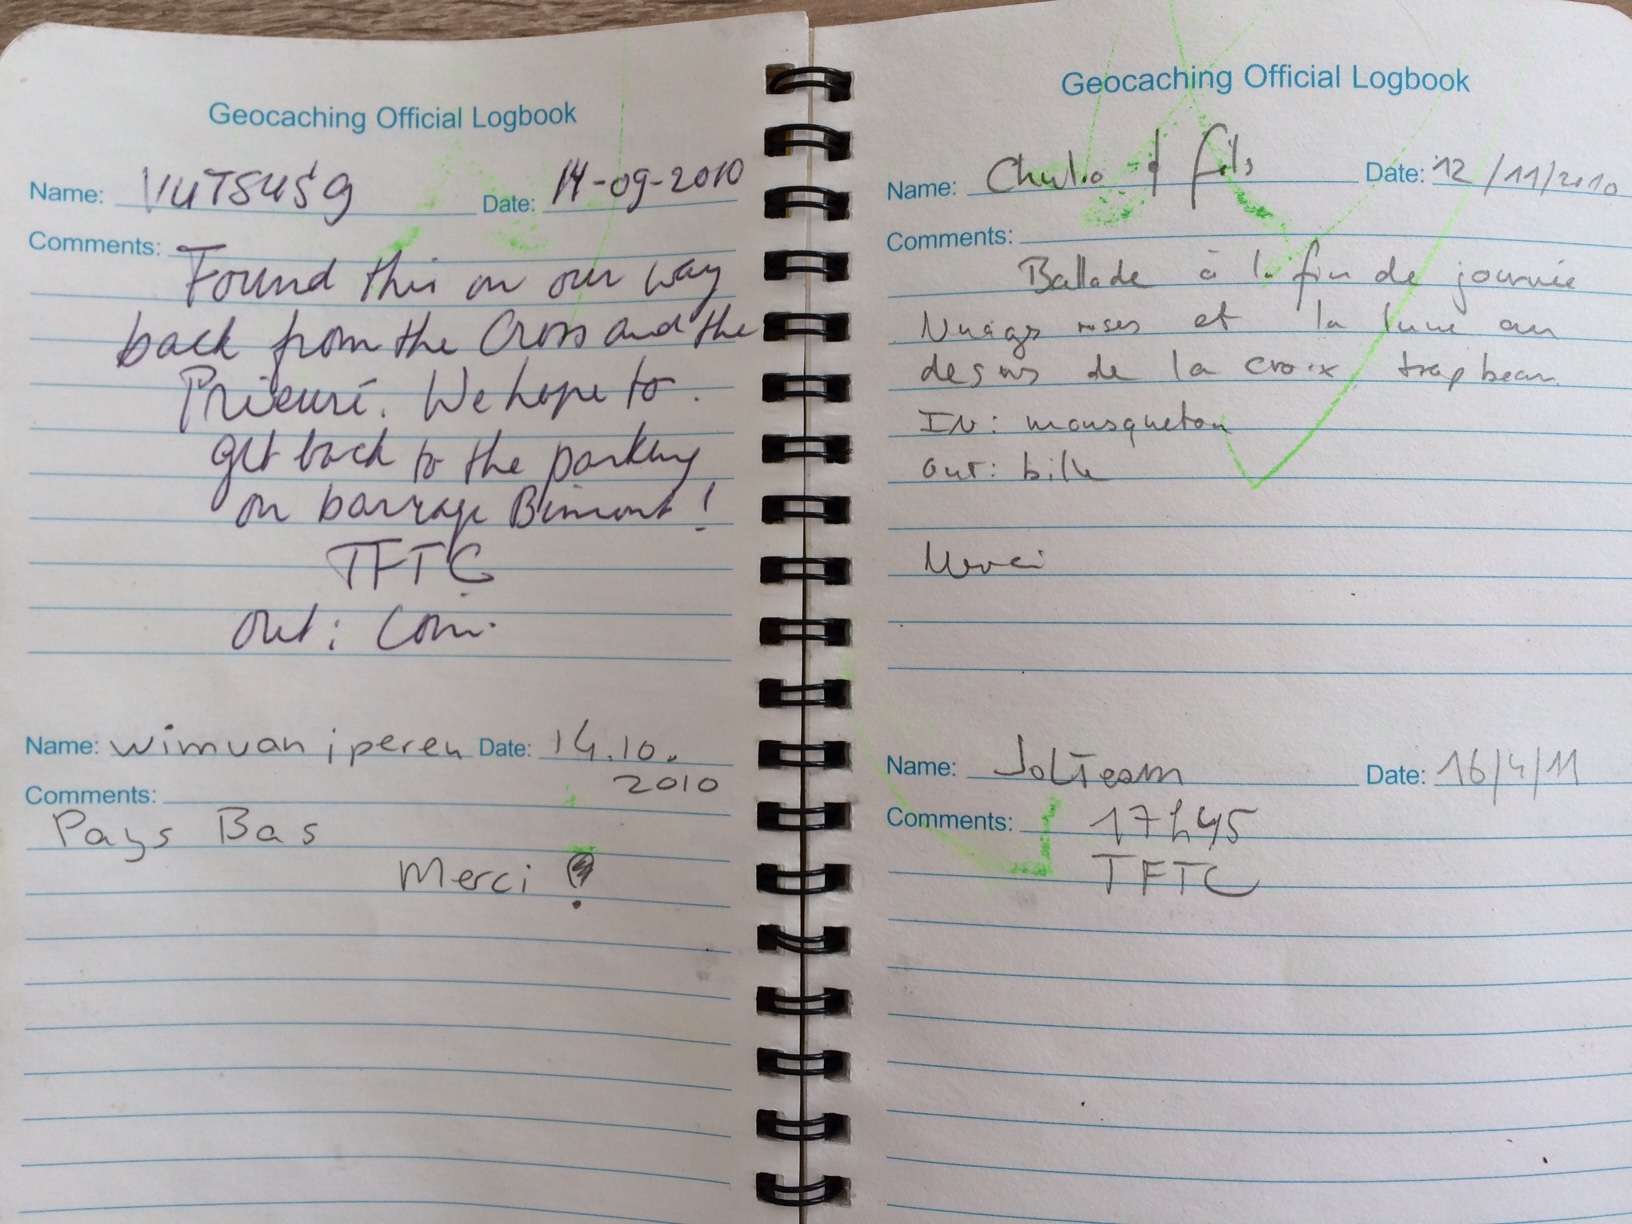 Geocaching Official Logbook
Name: VUTSUSG Date: 14-09-2010
Comments:
Found this on our way
back from the Cross and the
Prieuré. We hope to
get back to the parking
on barrage Bimont!
TFTC
Out: Coin.
Name: wimvaniperen Date: 14.10.
2010
Comments:
Pays Bas
Merci !
Geocaching Official Logbook
Name: & fils Date: 12/11/2010
Comments:
Ballade à la fin de journée
Nuages roses et la lune au
dessus de la croix, trop beau.
IN: mousqueton
out: bille
Merci
Name: JolTeam Date: 16/4/11
Comments: 17h45
TFTC